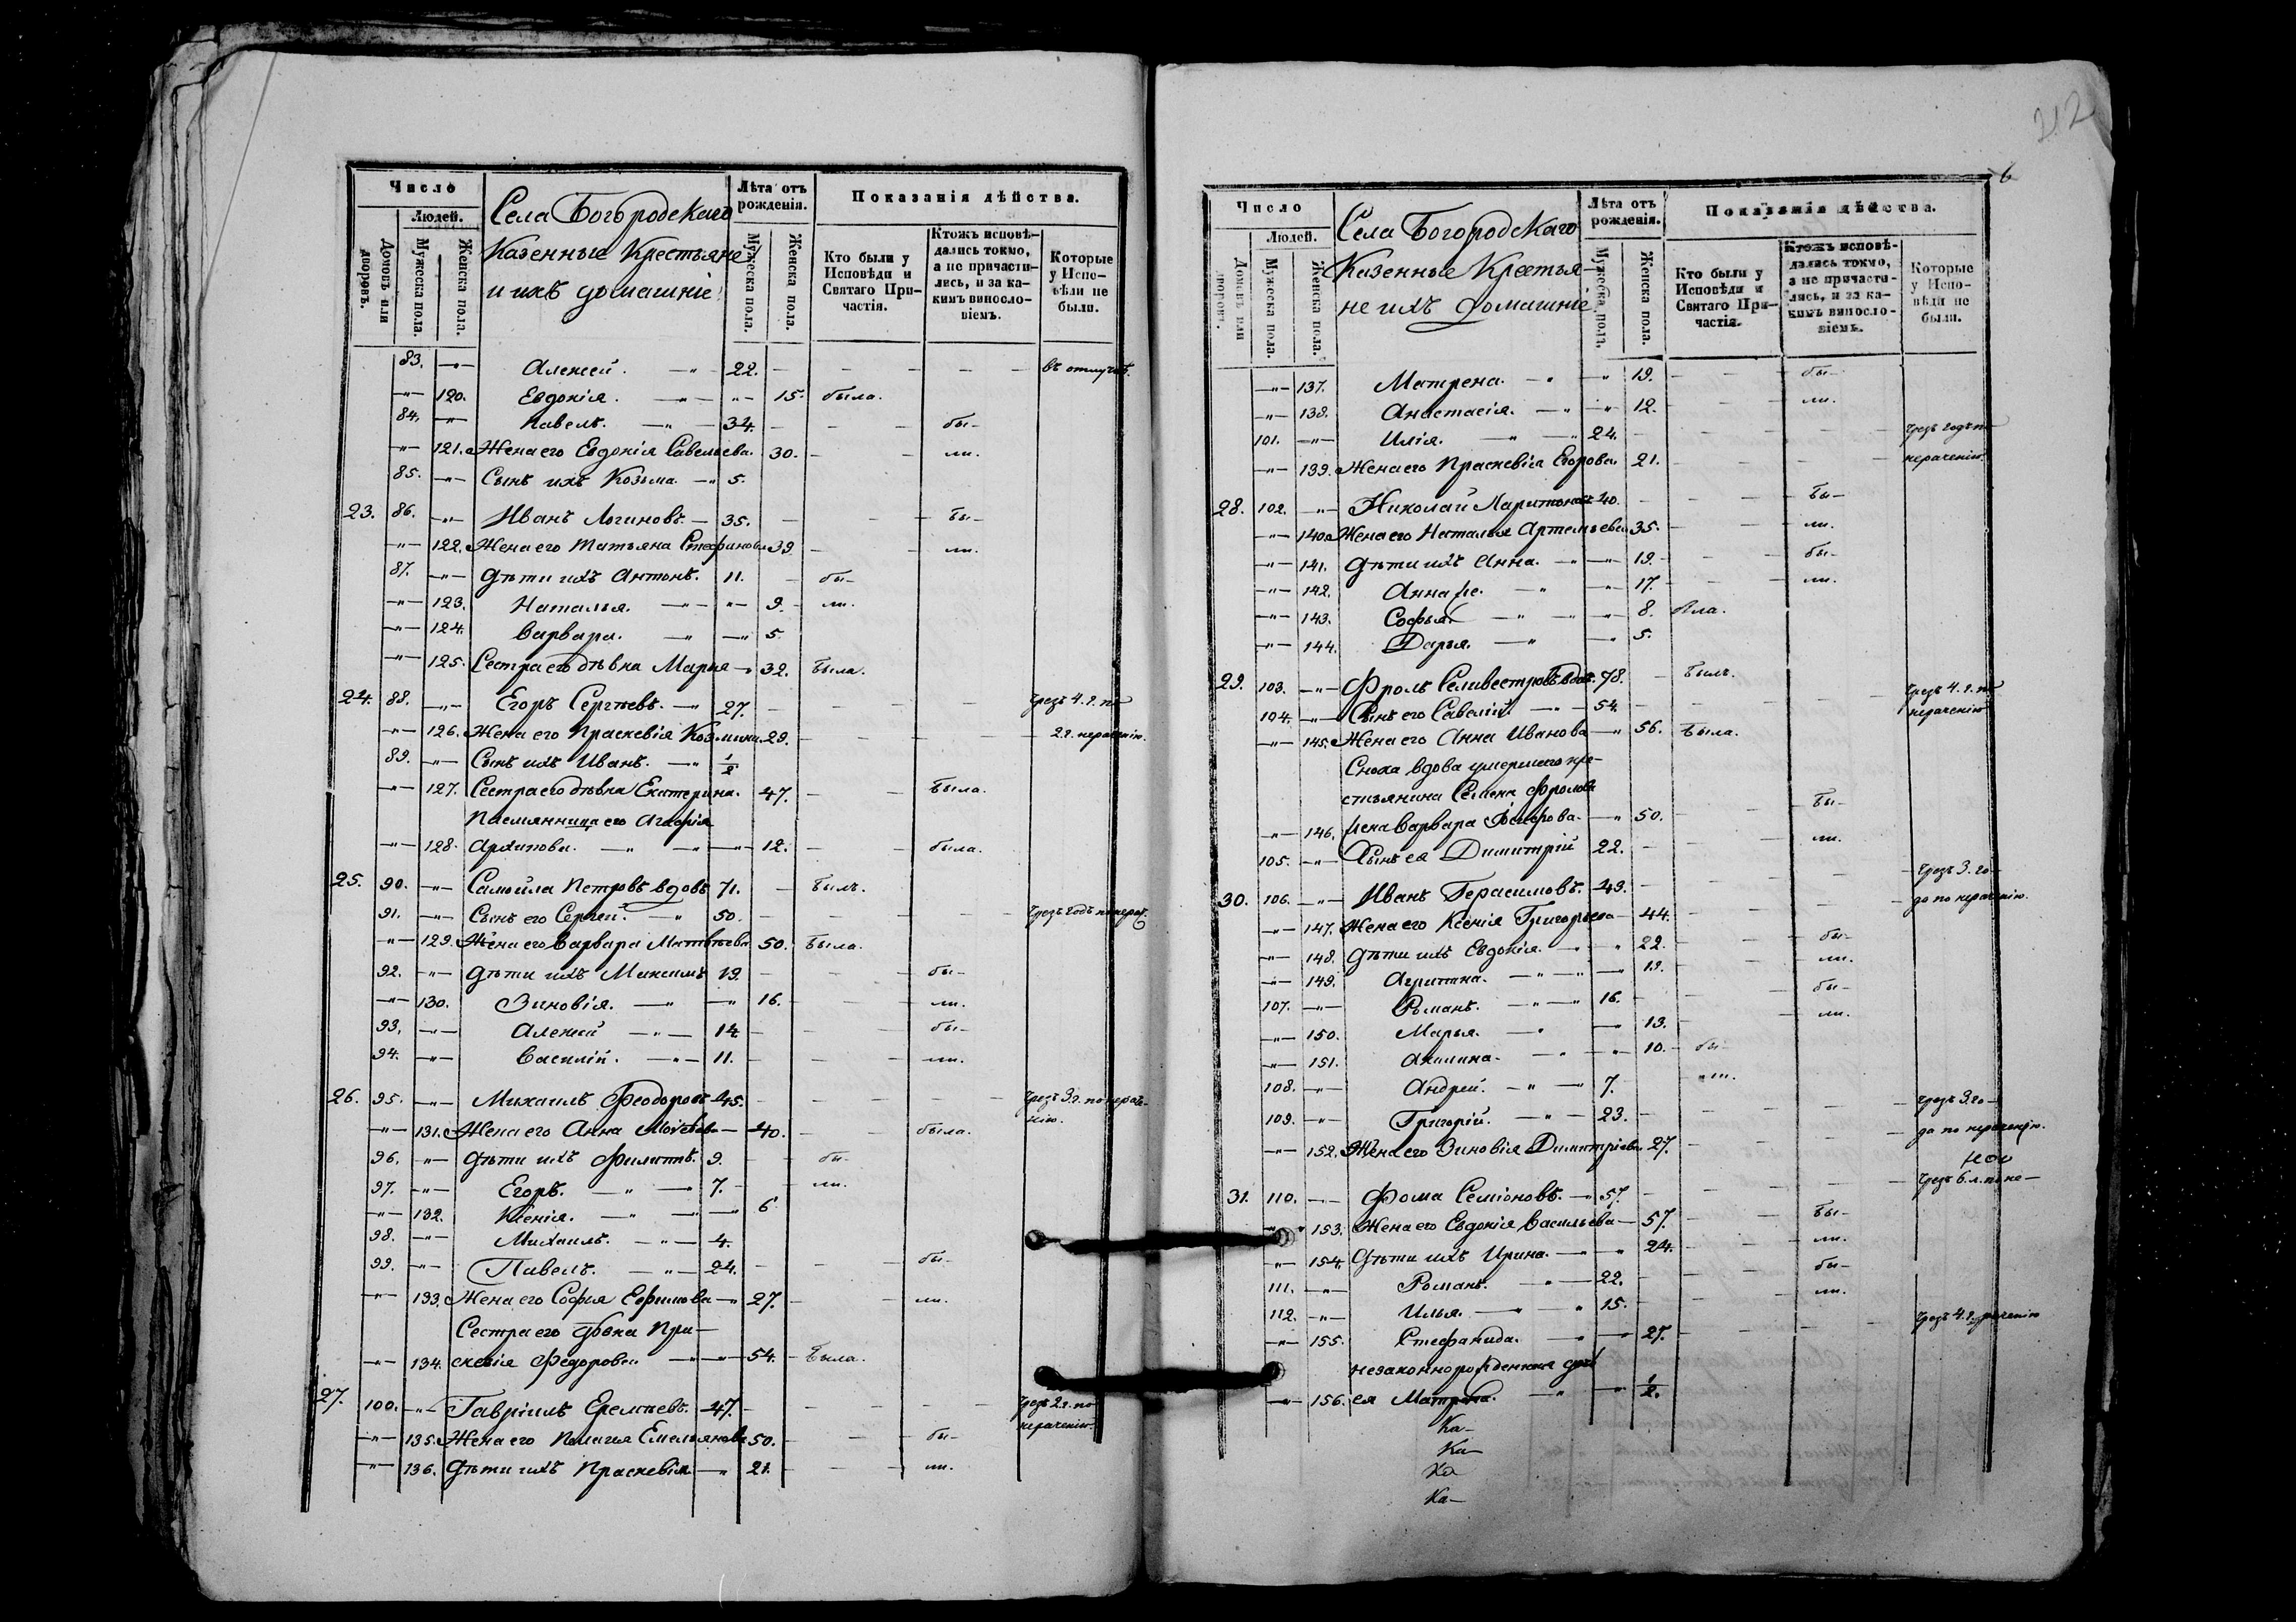 Число
Людей.
Домовъ или дворовъ.
Мужеска пола.
Женска пола.
Села Богородскаго
Казенные Крестьяне
и ихъ домашніе
Лѣта отъ рожденія.
Мужеска пола.
Женска пола.
Показанія дѣйства.
Кто были у Исповѣди и Святаго Причастія.
Ктожъ исповѣдались токмо, а не причастились, и за какимъ винословіемъ.
Которые у Исповѣди не были.
83. —"— Алексей. —"— 22. въ отлучкѣ.
—"— 120. Евдокія. —"— 15. была.
84. —"— Павелъ. —"— 34. бы-
—"— 121. Жена его Евдокія Савельева. 30. ли.
85. —"— Сынъ ихъ Козьма —"— 5.
23. 86. —"— Иванъ Логиновъ. — 35. Бы-
—"— 122. Жена его Татьяна Стефанова 39. ли.
87. —"— Дѣти ихъ Антонъ. 11. бы-
—"— 123. Наталья. —"— 9. ли.
—"— 124. Варвара. —"— 5.
—"— 125. Сестра его дѣвка Марья —"— 32. Была.
24. 88. —"— Егоръ Сергѣевъ. —"— 27. Чрезъ 4. г. по
—"— 126. Жена его Праскевія Козмина. 29. 2 г. нерачению.
89. —"— Сынъ ихъ Иванъ. —"— 1/2
—"— 127. Сестра его дѣвка Екатерина. 47. Была.
Племянница его Агафія
—"— 128. Архипова. —"— 12. была.
25. 90. —"— Самойла Петровъ вдовъ 71. Былъ.
91. —"— Сынъ его Сергей. —"— 50. Чрезъ годъ по нерач.
—"— 129. Жена его Варвара Матвѣева 50. Была.
92. —"— Дѣти ихъ Максимъ 19. бы-
—"— 130. Зиновія. —"— 16. ли.
93. —"— Алексей —"— 14. бы-
94. —"— Василій. —"— 11. ли.
26. 95. —"— Михаилъ Феодоровъ 45. Чрезъ 3. г. по нераче-
нію.
—"— 131. Жена его Анна Моисеева — 40. была.
96. —"— Дѣти ихъ Филиппъ. 9. бы-
97. —"— Егоръ. —"— 7. ли.
—"— 132. Ксенія. —"— 6
98. —"— Михаилъ. —"— 4.
99. —"— Павелъ. —"— 24. бы-
—"— 133. Жена его Софья Ефимова —"— 27. ли.
Сестра его дѣвка Пра-
—"— 134. скевія Федорова —"— 54. Была.
27. 100. —"— Гавріилъ Еремѣевъ. 47. Чрезъ 2 г. по
нерачению.
—"— 135. Жена его Пелагия Емельянова 50. бы-
—"— 136. Дѣти ихъ Праскевія —"— 21. ли.
212
6
Число
Людей.
Домовъ или дворовъ.
Мужеска пола.
Женска пола.
Села Богородскаго
Казенные Крестья-
не ихъ домашніе
Лѣта отъ рожденія.
Мужеска пола.
Женска пола.
Показанія дѣйства.
Кто были у Исповѣди и Святаго Причастія.
Ктожъ исповѣдались токмо, а не причастились, и за какимъ винословіемъ.
Которые у Исповѣди не были.
—"— 137. Матрена. —"— 19. бы-
—"— 138. Анастасія. —"— 12. ли.
101. —"— Илія. —"— 24. Чрезъ годъ по
—"— 139. Жена его Праскевія Егорова. 21. нерачению.
28. 102. —"— Николай Харитоновъ 40. Бы-
—"— 140. Жена его Наталья Артемьева 35. ли.
—"— 141. Дѣти ихъ Анна. —"— 19. бы-
—"— 142. Анна же. —"— 17. ли.
—"— 143. Софья. —"— 8. была.
—"— 144. Дарья. —"— 5.
29. 103. —"— Фролъ Селивестровъ вдов. 78. Былъ.
104. —"— Сынъ его Савелій. —"— 54. Чрезъ 4. г. по
нерачению
—"— 145. Жена его Анна Иванова —"— 56. Была.
Сноха вдова умершаго кре-
стьянина Семена Фролова
—"— 146. жена Варвара —"— 50. Бы-
105. —"— Сынъ ея Димитрій 22. ли.
30. 106. —"— Иванъ Герасимовъ. 49. Чрезъ 3. го-
—"— 147. Жена его Ксенія Григорьева 44. да по нерачению.
—"— 148. Дѣти ихъ Евдокія. —"— 22. бы-
—"— 149. Агрипина. —"— 19. ли.
107. —"— Романъ. —"— 16. бы-
—"— 150. Марья. —"— 13. ли.
—"— 151. Акилина. —"— 10. бы-
108. —"— Андрей. —"— 7. ли.
109. —"— Григорій. —"— 23. Чрезъ 3 го-
—"— 152. Жена его Зиновія Димитріева 27. да по нерачению.
31. 110. —"— Фома Семіоновъ. —"— 57. Чрезъ 6. л. по не-
—"— 153. Жена его Евдокія Васильева — 57. Бы-
—"— 154. Дѣти ихъ Ирина. —"— 24. ли.
111. —"— Романъ. —"— 22. бы-
112. —"— Илья. —"— 15. ли.
—"— 155. Стефанида. —"— 27. Чрезъ 4. г.
незаконнорожденная дочь
—"— 156. ея Матрена. —"— 1/2.
Ка-
Ка-
Ка
Ка-